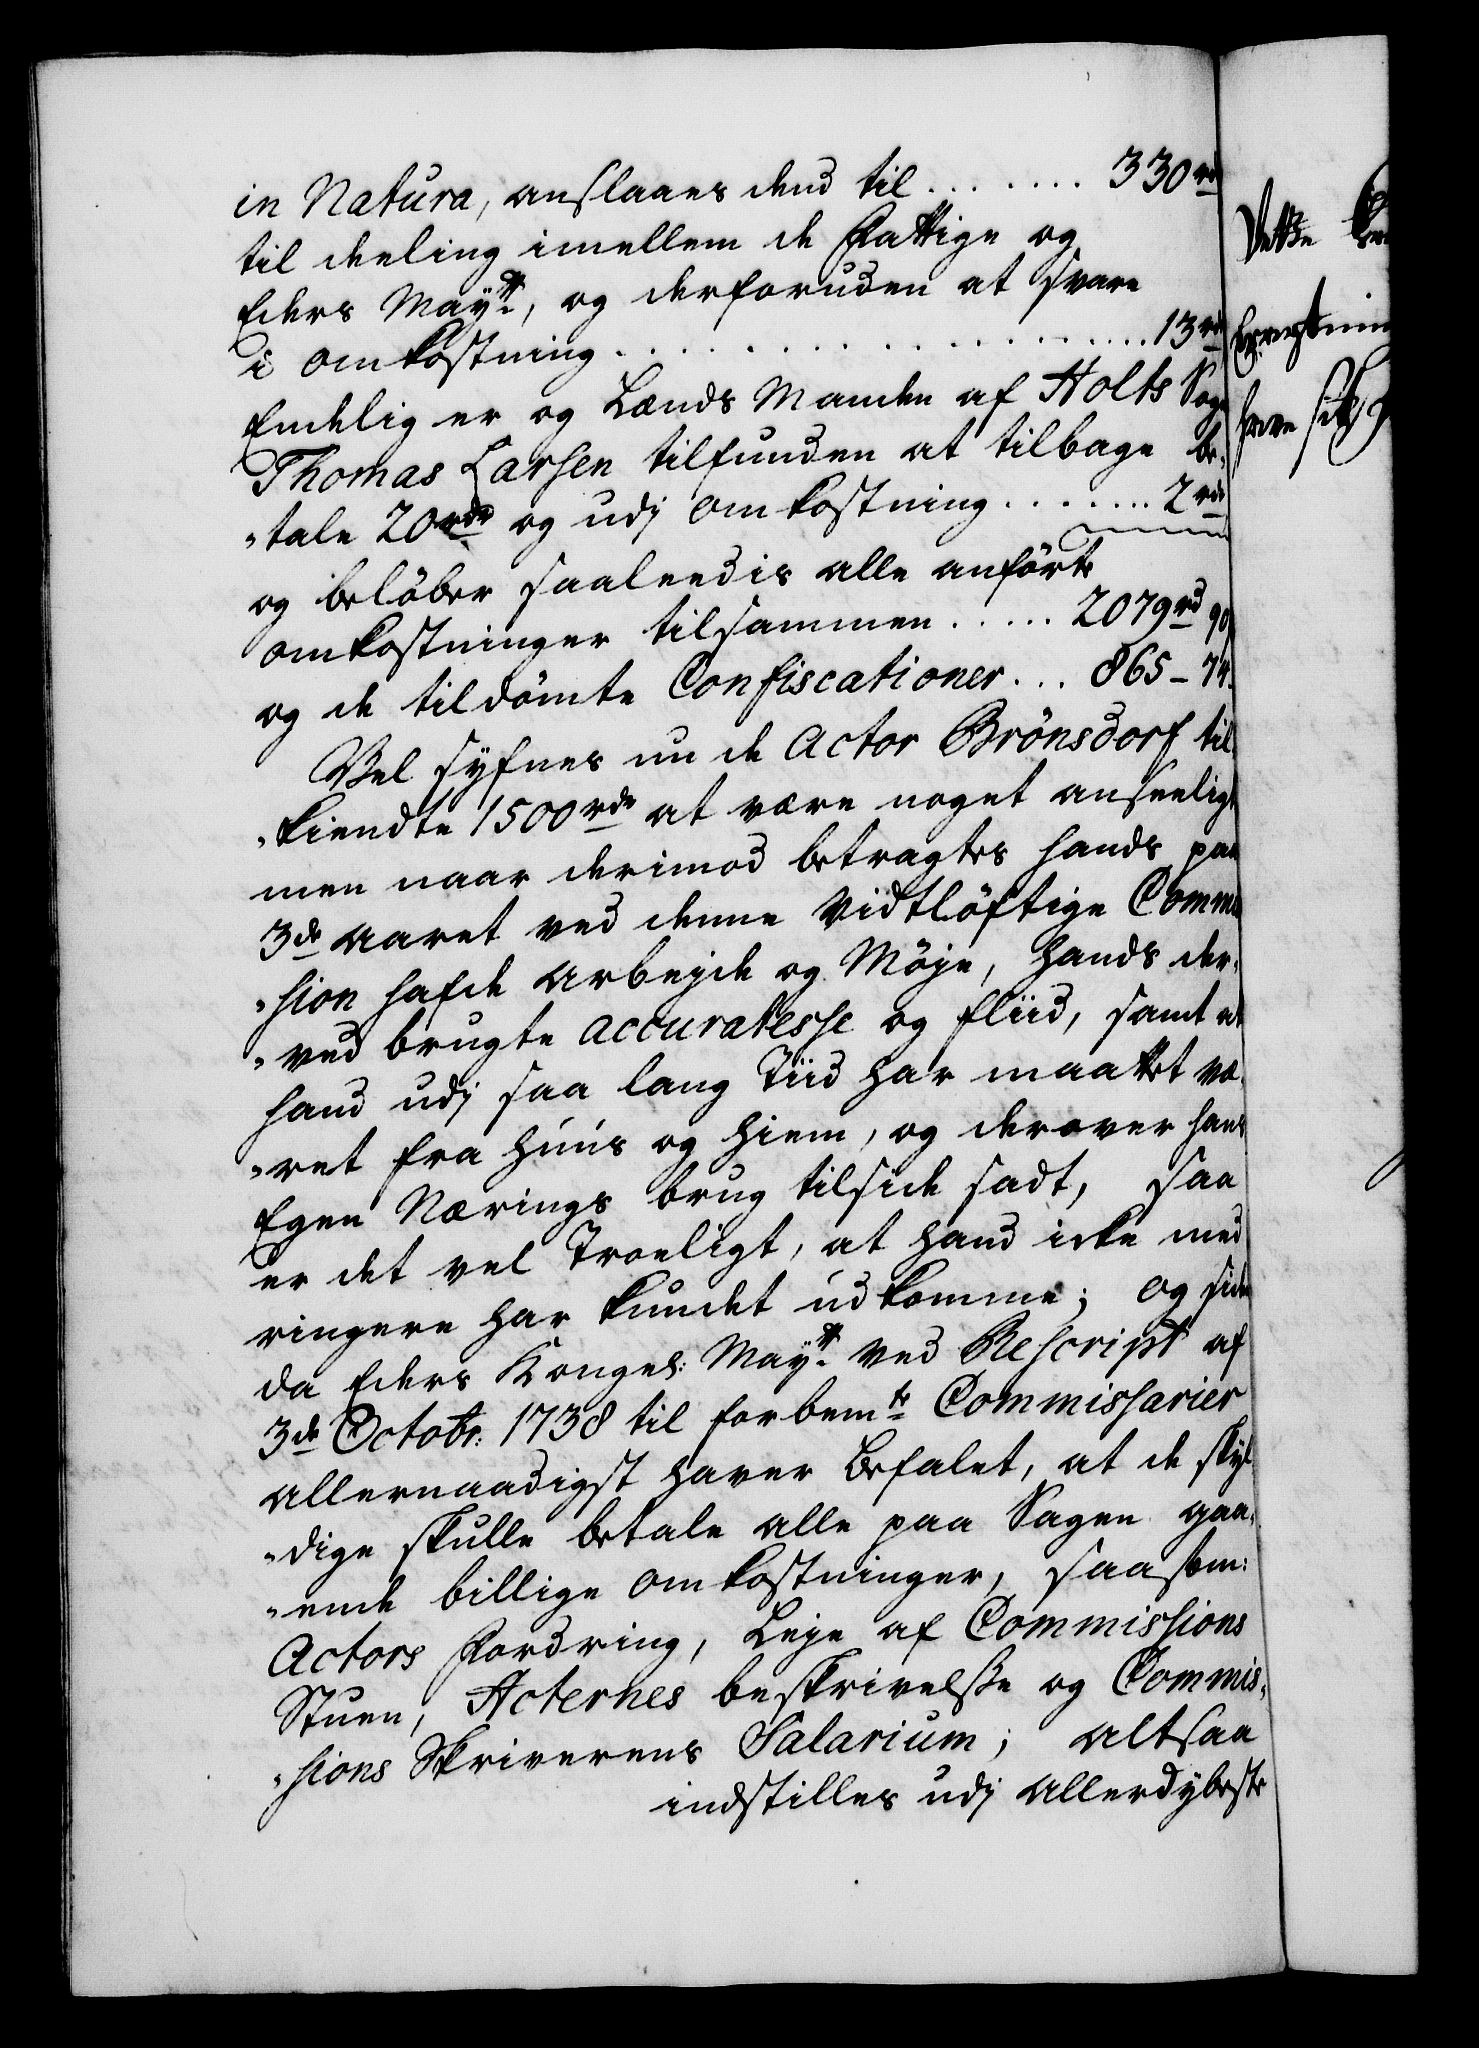 in Natura, anslaaes dend til ........ 330 rd
til deeling imellem de Fattige og
Eders Mayt:, og derforuden at svare
i omkostning ..................... 13 rd
Endelig er og Lænds Manden af Holts Sogn
Thomas Larsen tilfunden at tilbage be„
„tale 20 rdr og udj omkostning ........ 2 rdr
og belöber saaleedis alle anförte
omkostninger tilsammen ..... 2079 rd 90
og de tildömte Confiscationer ... 865 – 74
Vel syfnes nu de Actor Brönsdorf til„
„kiendte 1500 rdr at være noget anseeligt
men naar derimod betragtes hands paa
3de Aaret ved denne Vidtlöftige Commis
„sion hafde Arbejde og Möje, hands der„
„ved brugte accuratesse og fliid, samt at
hand udj saa lang Tiid har maattet væ„
„ret fra Huus og Hiem, og derover hans
Egen Nærings brug tilside sadt, saa
er det vel Troeligt, at hand icke med
ringere har kundet udkomme; og siden
da Eders Kongel: Mayt: ved Rescript af
3de Octobr: 1738 til forbemte Commissarier
allernaadigst haver befalet, at de skyl
„dige skulle betale alle paa Sagen gaa„
„ende billige omkostninger, saasom:
Actors Fordring, Leje af Commissions
Stuen, Acternes beskrivelsse og Commis„
„sions Skriverens Salarium; altsaa
indstilles udj allerdybeste
Dette